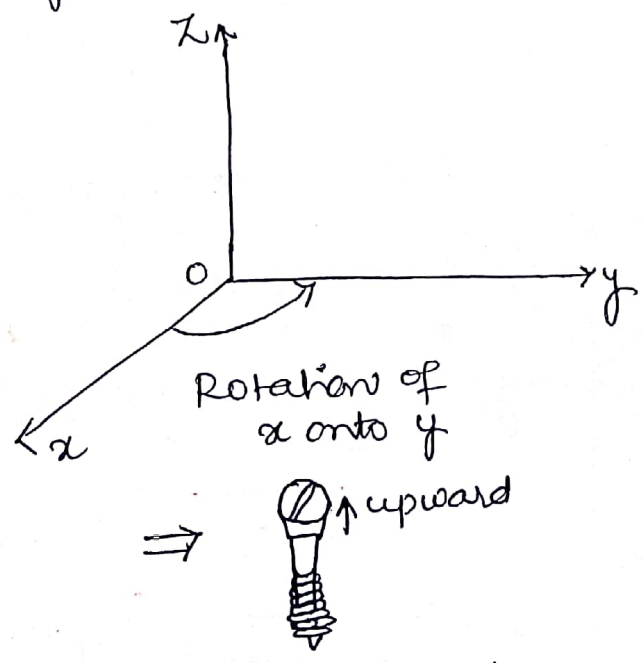 Z
O
y
x
Rotation of
x onto y
⇒
↑ upward